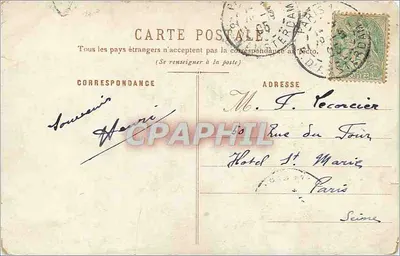 CARTE POSTALE
Tous les pays étrangers n'acceptent pas la correspondance au recto.
(Se renseigner à la poste)
CORRESPONDANCE
ADRESSE
Souvenir
Henri
M. F. Lecorcier
60 Rue du Four
Hotel St. Marie
Paris
Seine
CPAPHIL.com
PARIS